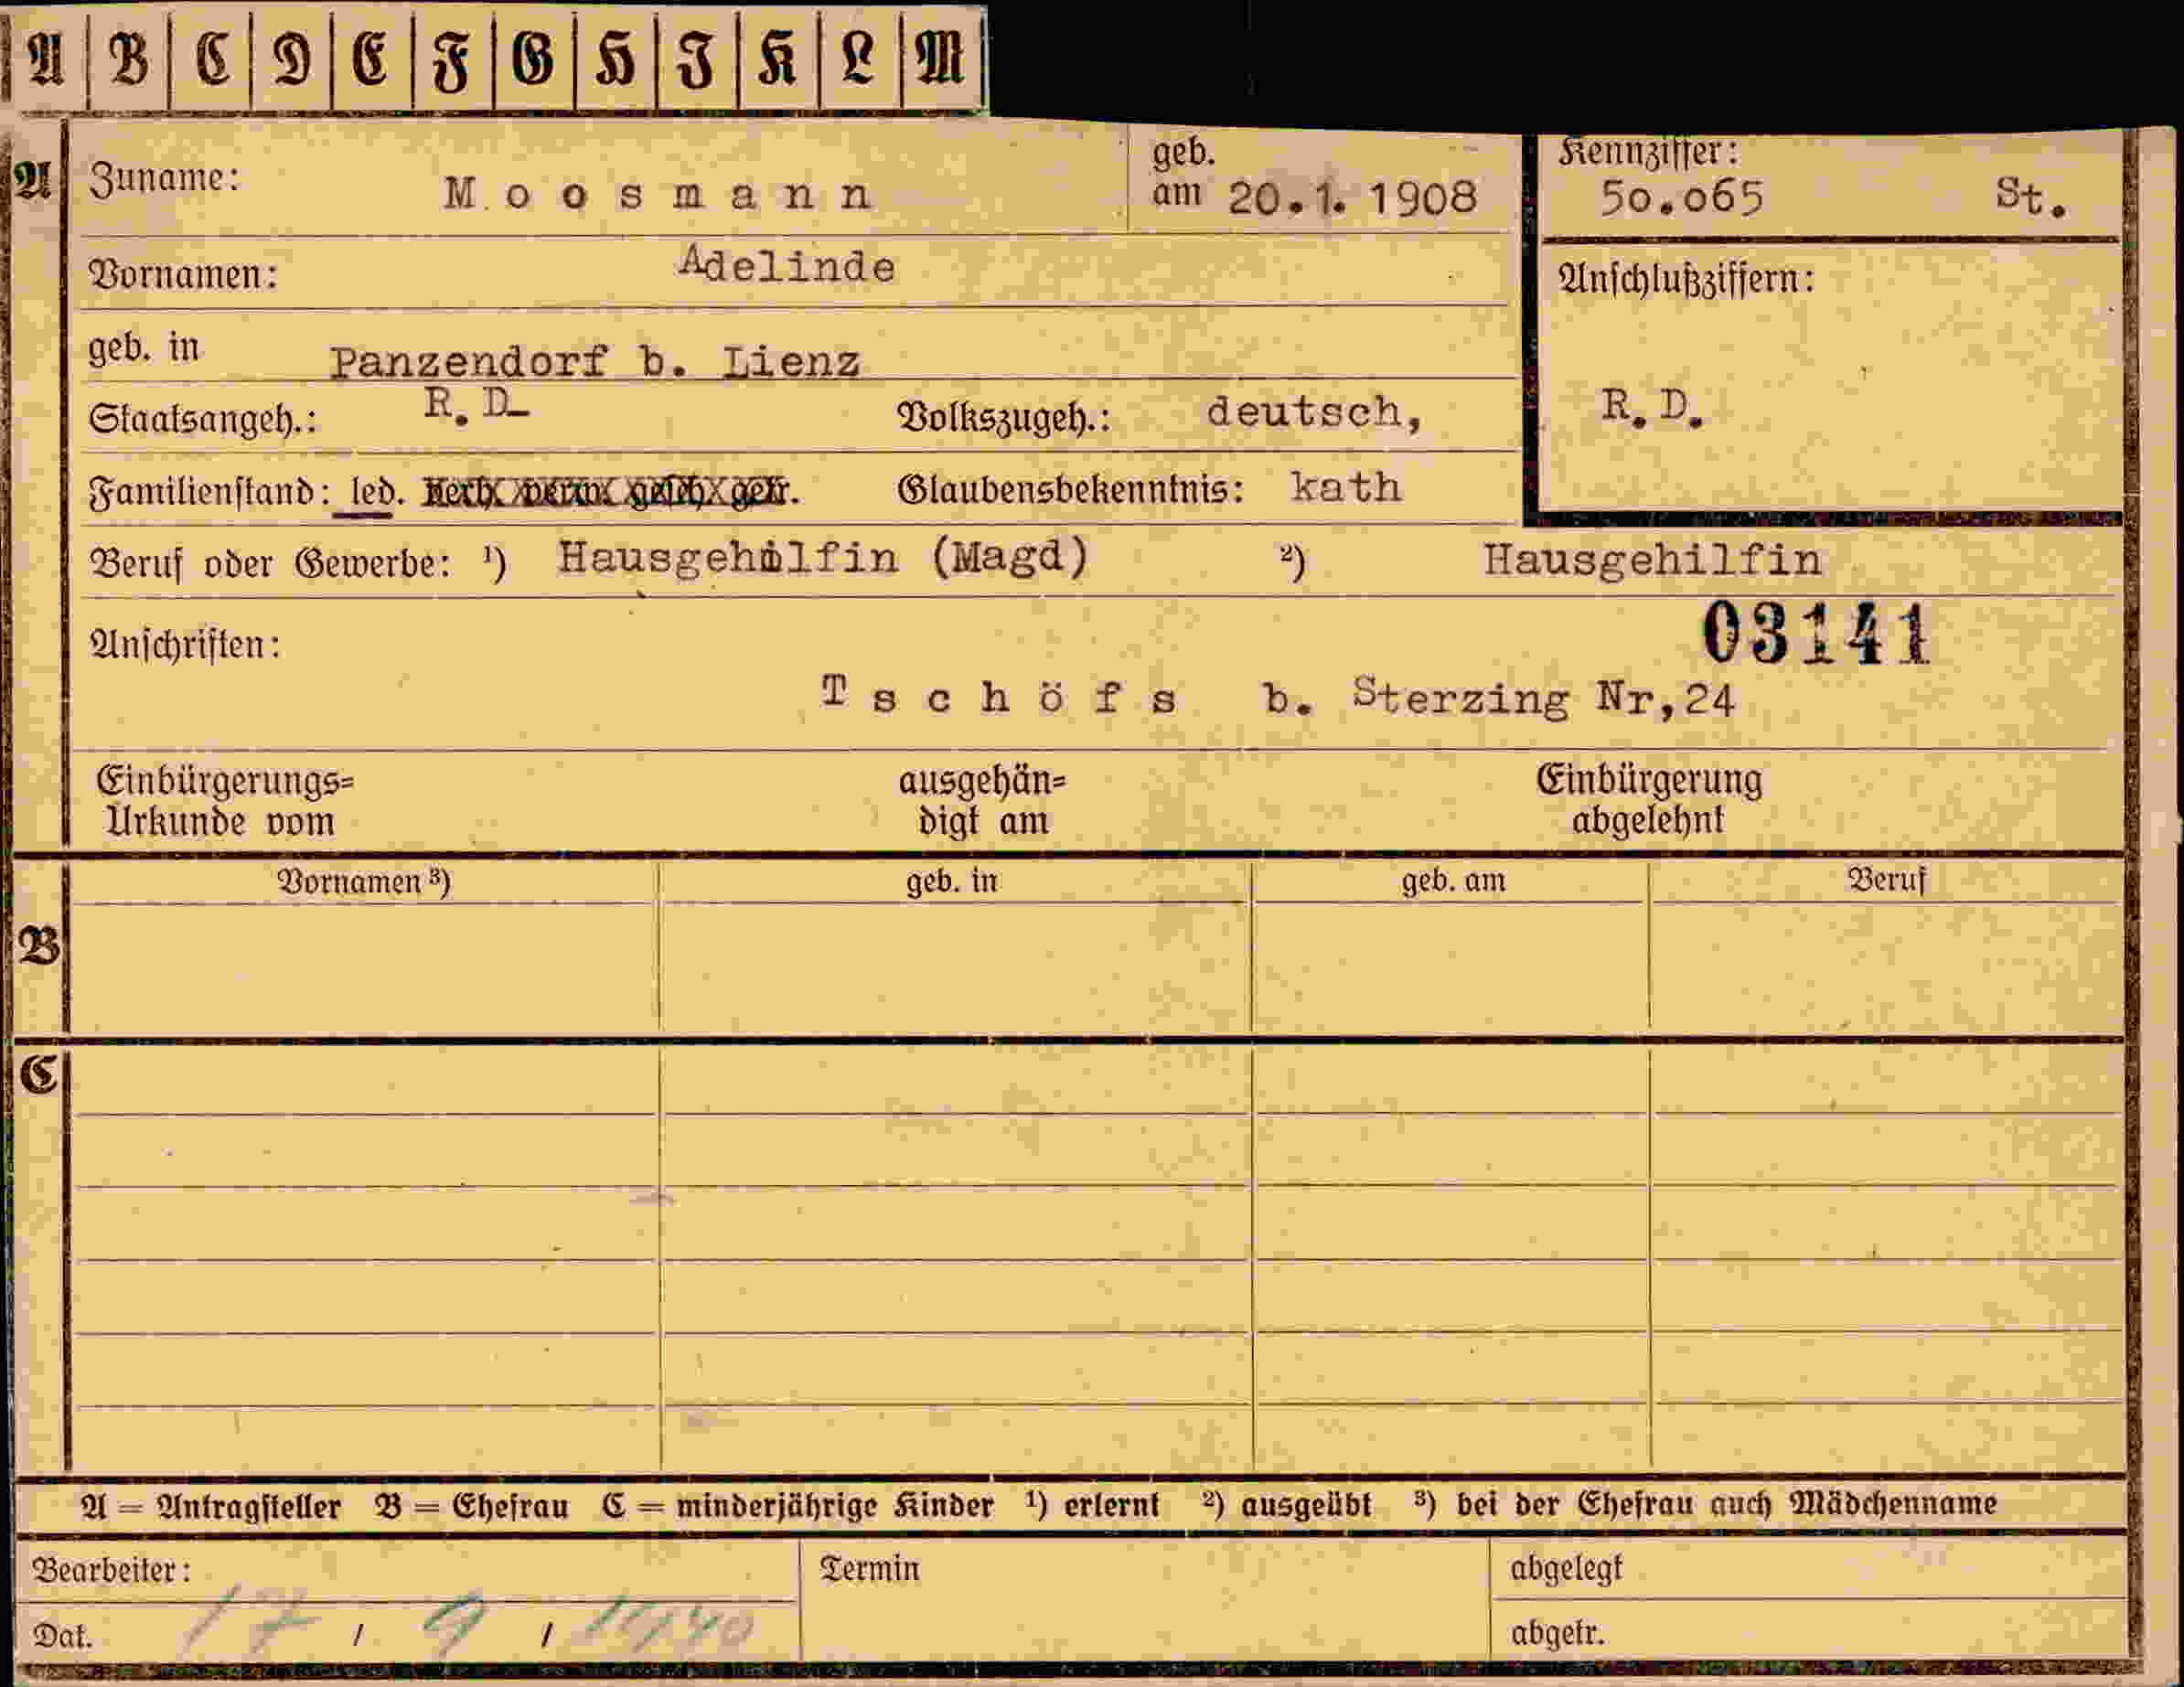 A B C D E F G H I K L M
A Zuname: Moosmann geb. am 20.1.1908 Kennziffer: 50.065 St.
Vornamen: Adelinde
Anschlußziffern:
geb. in Panzendorf b. Lienz
Staatsangeh.: R.D. Volkszugeh.: deutsch, R.D.
Familienstand: led. Glaubensbekenntnis: kath
Beruf oder Gewerbe: ¹) Hausgehilfin (Magd) ²) Hausgehilfin
03141
Anschriften:
Tschöfs b. Sterzing Nr,24
Einbürgerungs= ausgehän= Einbürgerung
Urkunde vom digt am abgelehnt
Vornamen ³) geb. in geb. am Beruf
B
C
A = Antragsteller B = Ehefrau C = minderjährige Kinder ¹) erlernt ²) ausgeübt ³) bei der Ehefrau auch Mädchenname
Bearbeiter: Termin abgelegt
Dat. 17 / 9 / 1940 abgetr.